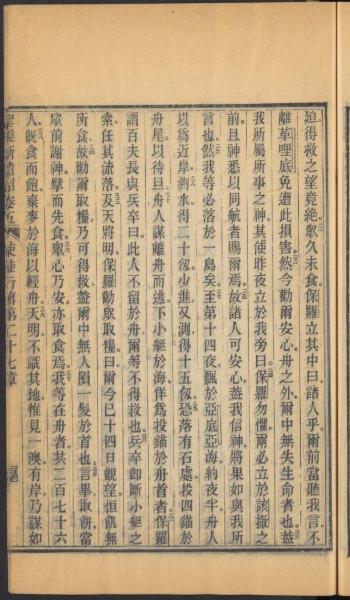 迨得救之望竟絶衆久未食保羅立其中曰諸人乎爾前當聽我言不
離革哩底免遭此損害然今勸爾安心舟之外爾中無失生命者也蓋
我所屬所事之神其使昨夜立於我旁曰保羅勿懼爾必立於該撒之
前且神悉以同航者賜爾焉故諸人可安心蓋我信神將果如與我所
言也然我等必落於一島矣至第十四夜飄於亞底亞海約夜半舟人
以為近岸測水得二十仭少進又測得十五仭恐落有石處投四錨於
舟尾以待旦舟人謀離舟而逃下小艇於海佯為投錨於舟首者保羅
謂百夫長與兵卒曰此人不留於舟爾等不得救也兵卒卽斷小艇之
索任其流落及天將明保羅勸眾取糧曰爾今已十四日觀望恒飢無
所食故勸爾取糧乃可得救蓋爾中無人隕一髮於首也言畢取餅當
眾前謝神擘而先食眾心乃安亦取食焉我等在舟者共二百七十六
人旣食而飽棄麥於海以輕舟天明不識其地惟見一澳有岸乃謀如
聖經新遺詔卷五 使徒行傳第二十七章